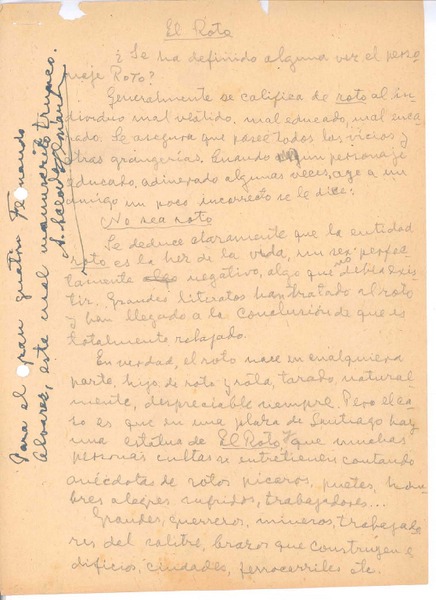 El Roto
¿Se ha definido alguna vez el perso
naje Roto?
Generalmente se califica de roto al in-
dividuo mal vestido, mal educado, mal enca-
rado. Se asegura que posee todos los vicios y
otras granjerías. Cuando un personaje
educado, adinerado algunas veces, oye a un
amigo un poco incorrecto se le dice:
No sea roto
Se deduce claramente que la entidad
roto es la hez de la vida, un ser perfec-
tamente negativo, algo que no debía exis
tir. Grandes literatos han tratado al roto
y han llegado a la conclusión de que es
totalmente rebajado.
En verdad, el roto nace en cualquiera
parte, hijo de roto y rota, tarado, natural
mente, despreciable siempre. Pero el ca-
so es que en una plaza de Santiago hay
una estatua de El Roto y que muchas
personas cultas se entretienen contando
anécdotas de rotos pícaros, poetas, hom-
bres alegres sufridos, trabajadores...
Grandes, guerreros, mineros, trabajado
res del salitre, brazos que construyen e
dificios, ciudades, ferrocarriles etc.
Para el gran Fernando
Alvarez, este mal manuscrito trunco.
A.